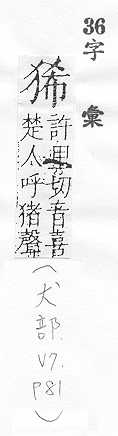 36字彙
狶
許里切音喜
楚人呼猪聲
(犬部. V7. P81)